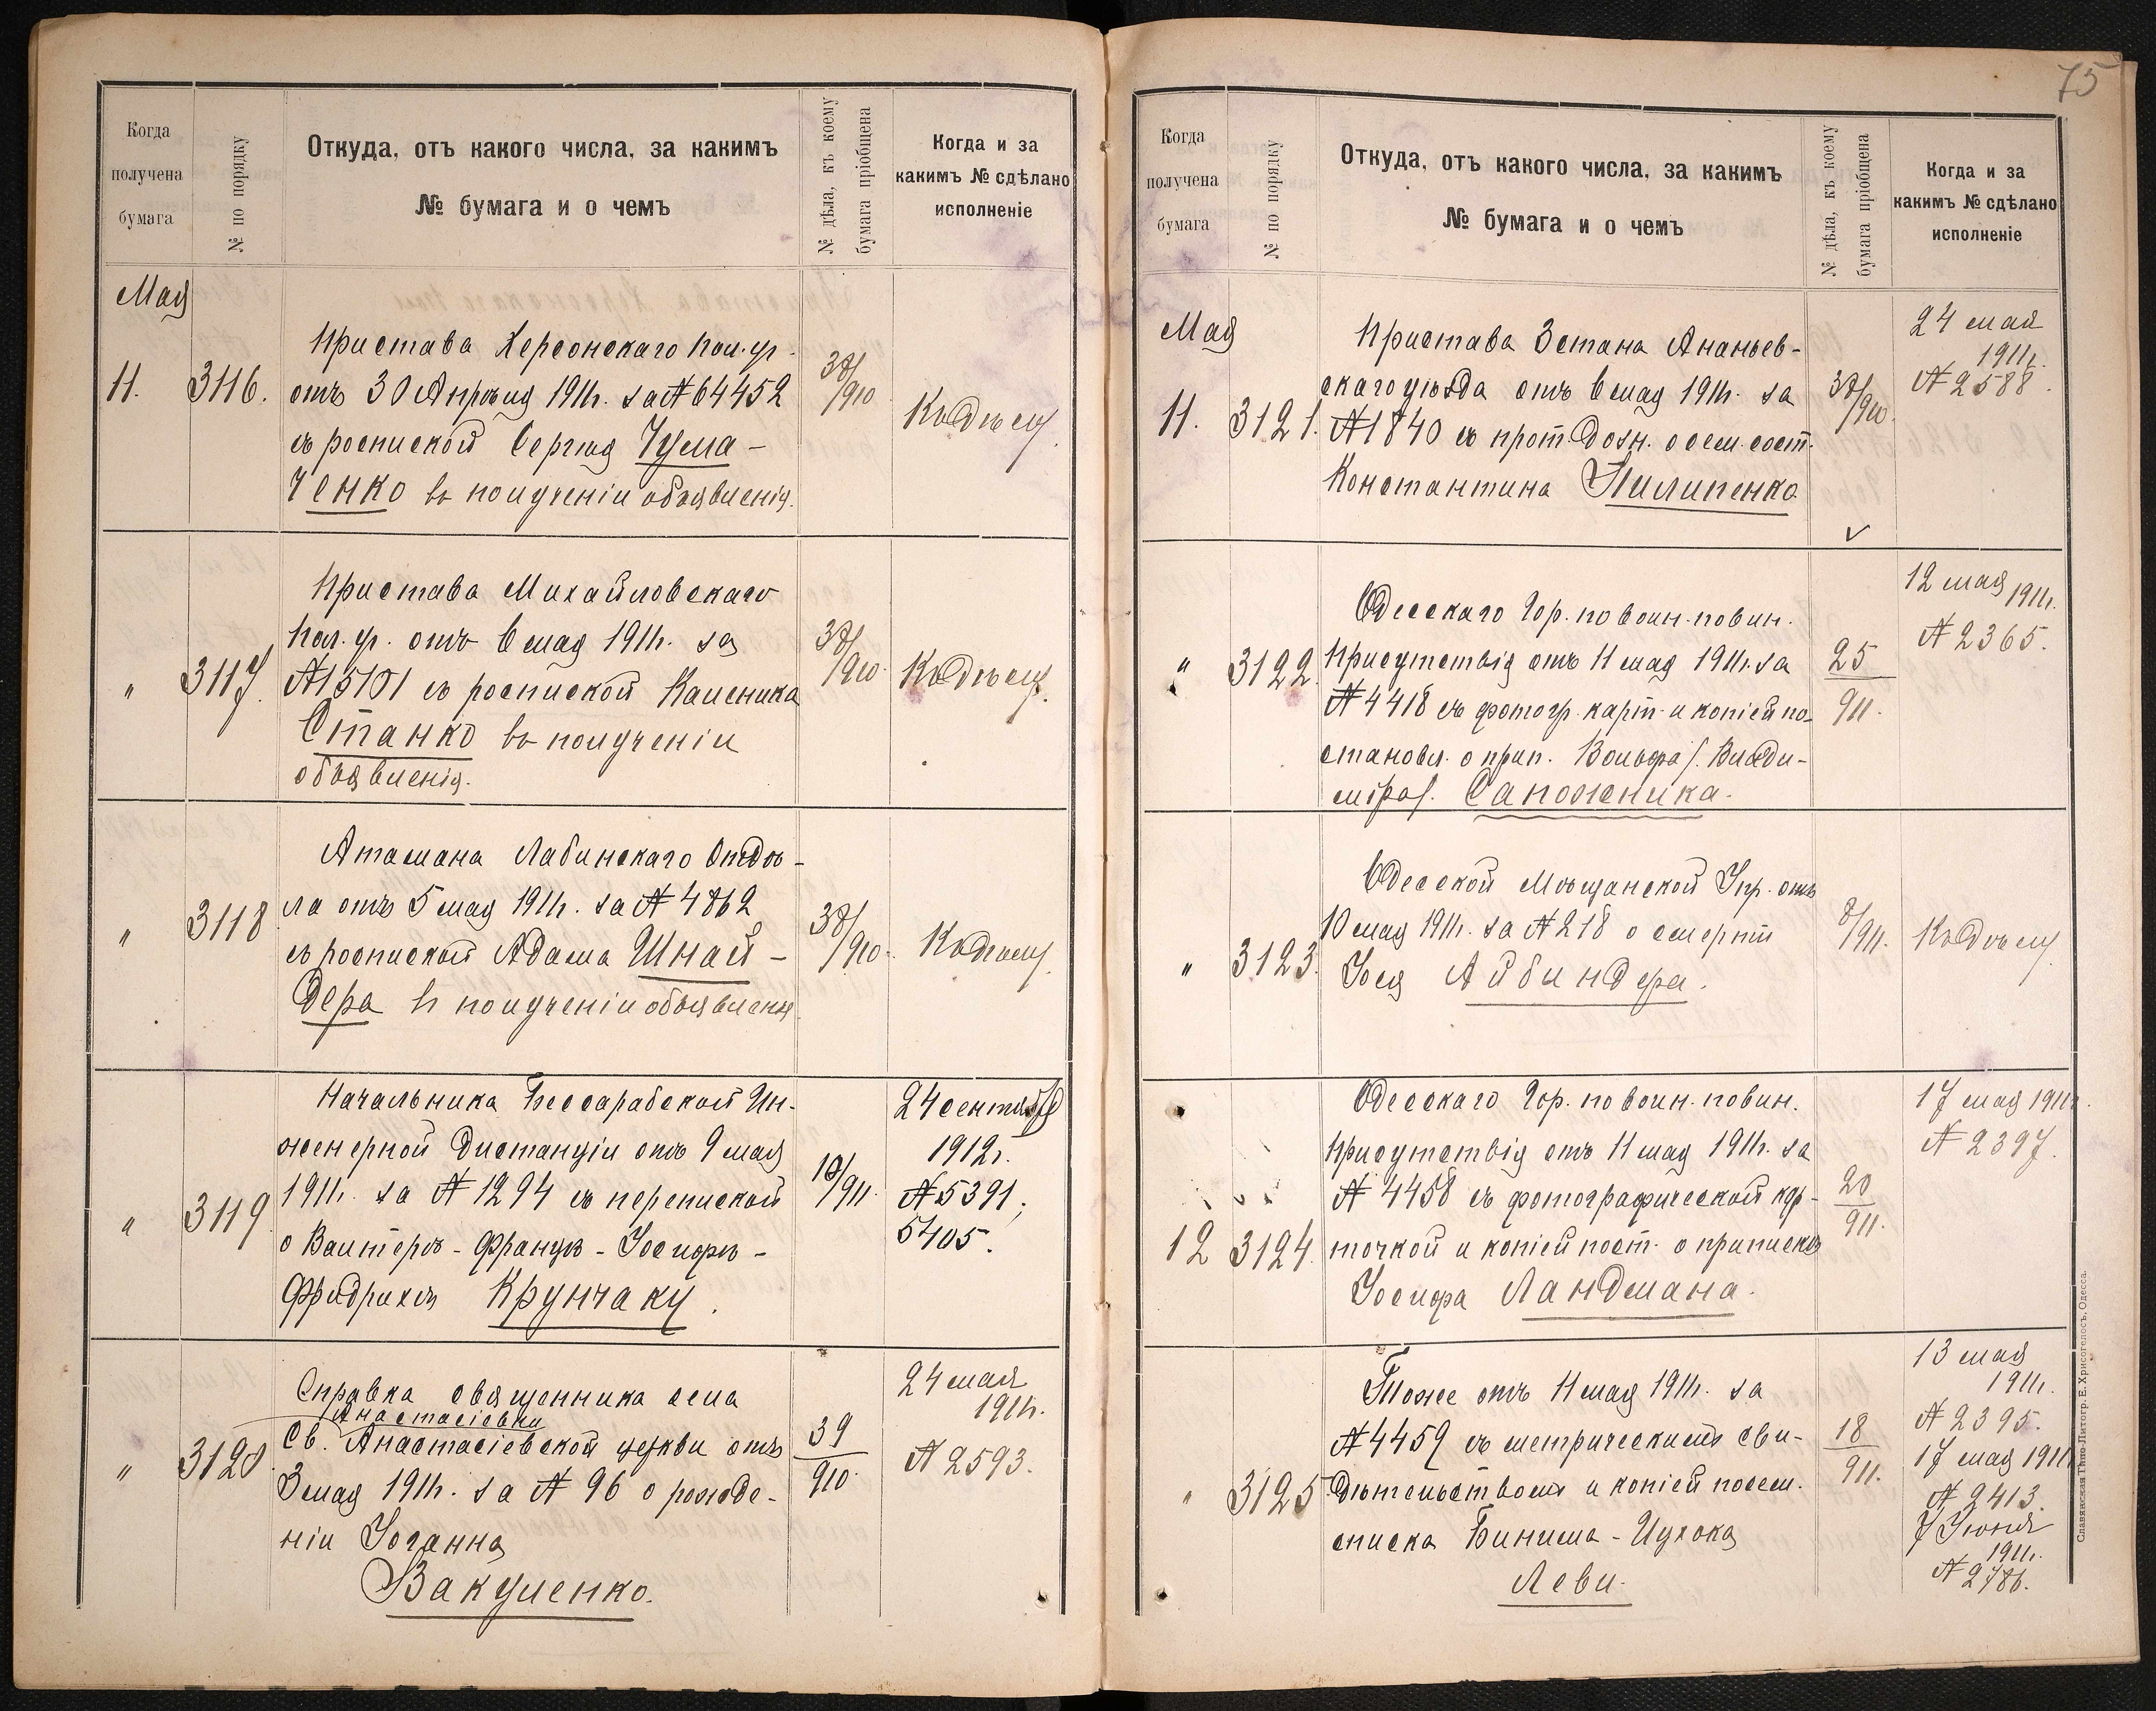 Когда
получена
бумага
№ по порядку
Откуда, отъ какого числа, за какимъ
№ бумага и о чемъ
№ дѣла, къ коему
бумага пріобщена
Когда и за
какимъ № сдѣлано
исполненіе
Мая
11.
3116.
Пристава Херсонскаго пол. уч.
отъ 30 Апрѣля 1911г. за № 64452
съ роспиской Сергѣя Чума-
ченко въ полученіи объявленія.
38/910
Къ дѣлу.
"
3117.
Пристава Михайловскаго
пол. уч. отъ 6 мая 1911г. за
№ 15101 съ роспиской Калсника
Станко въ полученіи
объявленія.
38/910.
Къ дѣлу.
"
3118
Атамана Лабинскаго Отдѣ-
ла отъ 5 мая 1911г. за № 4862
съ роспиской Адама Шнай-
дера въ полученіи объявленія
38/910.
Къ дѣлу.
"
3119
Начальника Бессарабской Ин-
женерной Дистанціи отъ 9 мая
1911г. за № 1294 съ перепиской
о Валтерѣ-Францѣ-Іосифѣ-
Фридрихѣ Крунчаку.
10/911.
24 сентября
1912г.
№ 5391;
5405.
"
3120
Справка священника села
Анастасіевки
Св. Анастасіевской церкви отъ
3 мая 1911г. за № 96 о рожде-
ніи Іоганна
Вакуленко.
39
910.
24 мая
1911г.
№ 2593.
75
Когда
получена
бумага
№ по порядку
Откуда, отъ какого числа, за какимъ
№ бумага и о чемъ
№ дѣла, къ коему
бумага пріобщена
Когда и за
какимъ № сдѣлано
исполненіе
Мая
11.
3121.
Пристава 3 стана Ананьев-
скаго уѣзда отъ 6 мая 1911г. за
№ 1840 съ прот. дозн. о сем. сост.
Константина Пилипенко
38/910.
24 мая
1911г.
№ 2588.
"
3122.
Одесскаго Гор. по воин. повин.
Присутствія отъ 11 мая 1911г. за
№ 4418 съ фотогр. карт. и копіей по-
становл. о прип. Вольфа/. Влади-
міра/. Сапожника.
25
911.
12 мая 1911г.
№ 2365.
"
3123.
Одесской Мѣщанской Упр. отъ
10 мая 1911г. за № 218 о смерти
Іося Айбиндера.
8/911.
Къ дѣлу
12
3124.
Одесскаго Гор. по воин. повин.
Присутствія отъ 11 мая 1911г. за
№ 4458 съ фотографической кар-
точкой и копіей пост. о припискѣ
Іосифа Ландмана.
20
911.
17 мая 1911г.
№ 2397.
"
3125
Тоже отъ 11 мая 1911г. за
№ 4459 съ метрическимъ сви-
дѣтельствомъ и копіей посем.
списка Биниша-Ицхока
Леви.
18
911.
13 мая
1911г.
№ 2395.
17 мая 1911
№ 2413.
7 Іюня
1911г.
№ 2786.
Славянская Типо-Литогр. Е. Хрисогелосъ, Одесса.